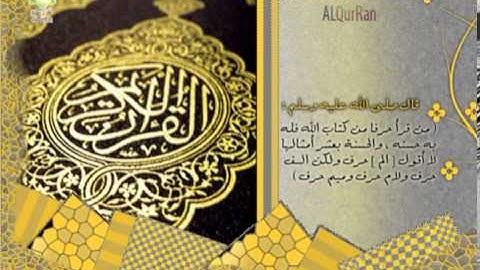 ALQurRan
القرآن الكريم
قال صلى الله عليه وسلم :
( من قرأ حرفا من كتاب الله فله
به حسنه ، والحسنة بعشر أمثالها
لا أقول [ الم ] حرف ولكن الف
حرف ولام حرف وميم حرف )